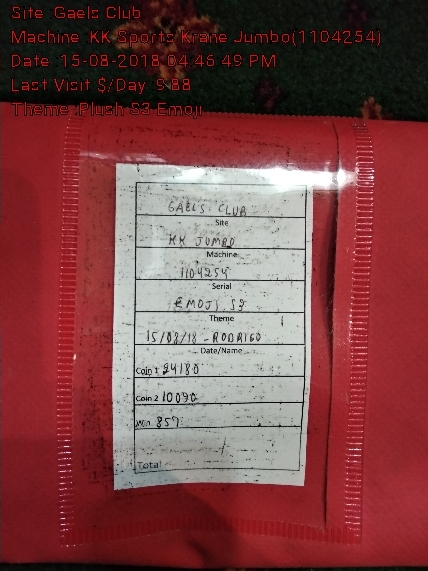 Site Gaels Club
Machine KK Sports Krane Jumbo(1104254)
Date 15-08-2018 04:46:49 PM
Last Visit $/Day 9.88
Theme Plush S3 Emoji
GAELS CLUB
Site
KK JUMBO
Machine
1104254
Serial
EMOJI S3
Theme
15/08/18 - RODRIGO
Date/Name
Coin 1 94180
Coin 2 10090
Win 857
Total